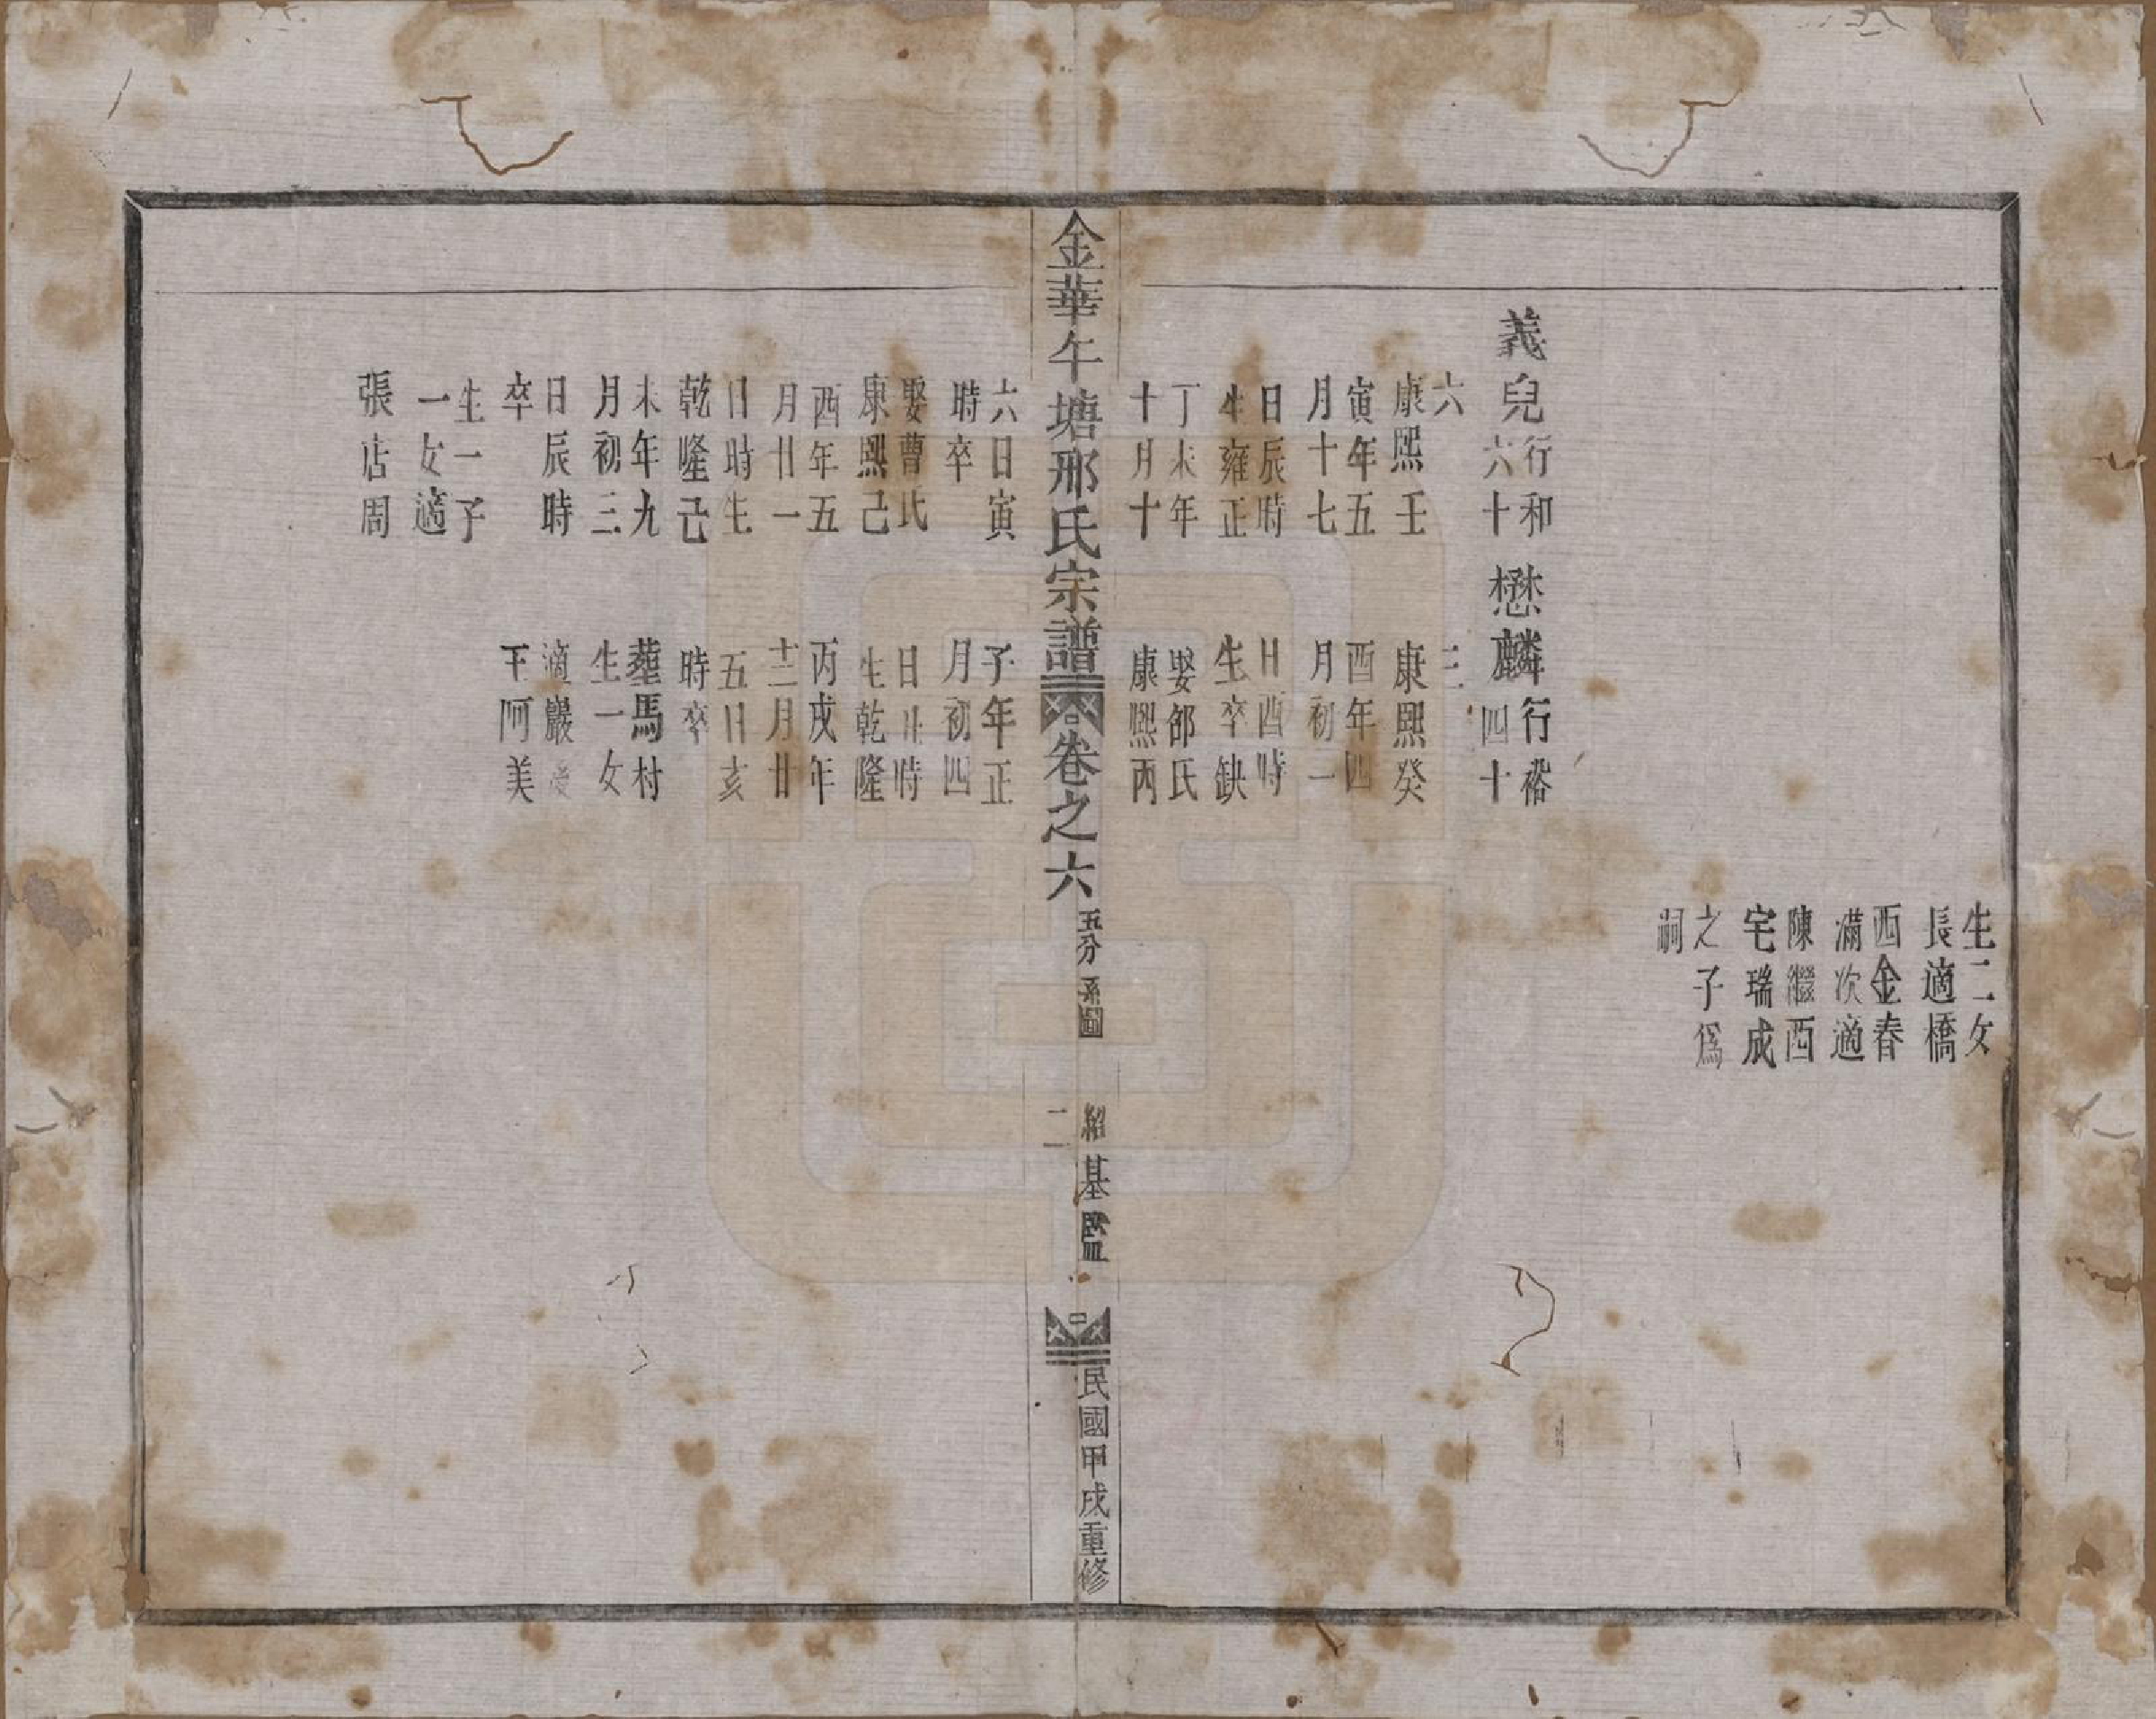 生二女
長適橋
西金春
滿次適
陳繼西
宅瑞成
之子爲
嗣
義兒行和
六十
六
康熙壬
寅年五
月十七
日辰時
生雍正
丁未年
十月十
六日寅
時卒
娶曹氏
康熙己
酉年五
月廿一
日時生
乾隆己
未年九
月初三
日辰時
卒
生一子
一女適
張店周
懋麟行裕
四十
三
康熙癸
酉年四
月初一
日酉時
生卒缺
娶邵氏
康熙丙
子年正
月初四
日丑時
生乾隆
丙戌年
十二月廿
五日亥
時卒
葬馬村
生一女
適巖
王阿美
金華午塘邢氏宗譜
卷之六
五分系圖
紹基監
二
民國甲戌重修